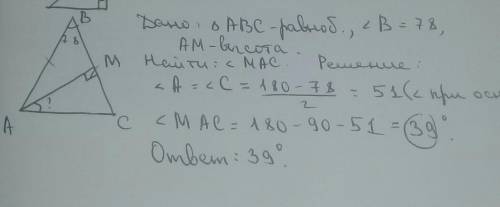 B
78
M
?
A
C
Дано: △ABC-равноб., <B = 78,
AM-высота.
Найти: <MAC. Решение:
<A = <C = 180 - 78 / 2 = 51 (< при осн
<MAC = 180 - 90 - 51 = 39°.
Ответ: 39°.